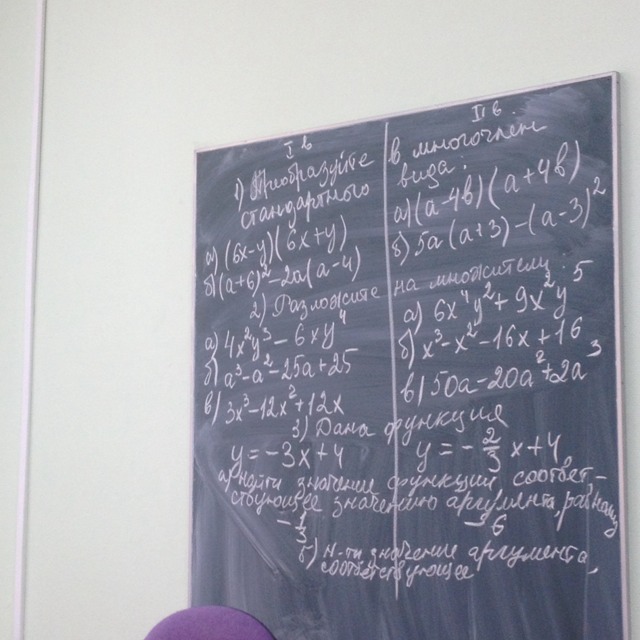 I в II в
1) Преобразуйте в многочлен
стандартного вида:
а) (6x-y)(6x+y) а) (a-4b)(a+4b)
б) (a+6)²-2a(a-4) б) 5a(a+3)-(a-3)²
2) Разложите на множители
а) 4x²y³-6xy⁴ а) 6x⁴y²+9x²y⁵
б) a³-a²-25a+25 б) x³-x²-16x+16
в) 3x³-12x²+12x в) 50a-20a²+2a³
3) Дана функция
y=-3x+4 y=-2/3x+4
а) найти значения функции, соответ-
ствующее значению аргумента, равному
-1/3 -6
б) н-ти значение аргумента,
соответствующее